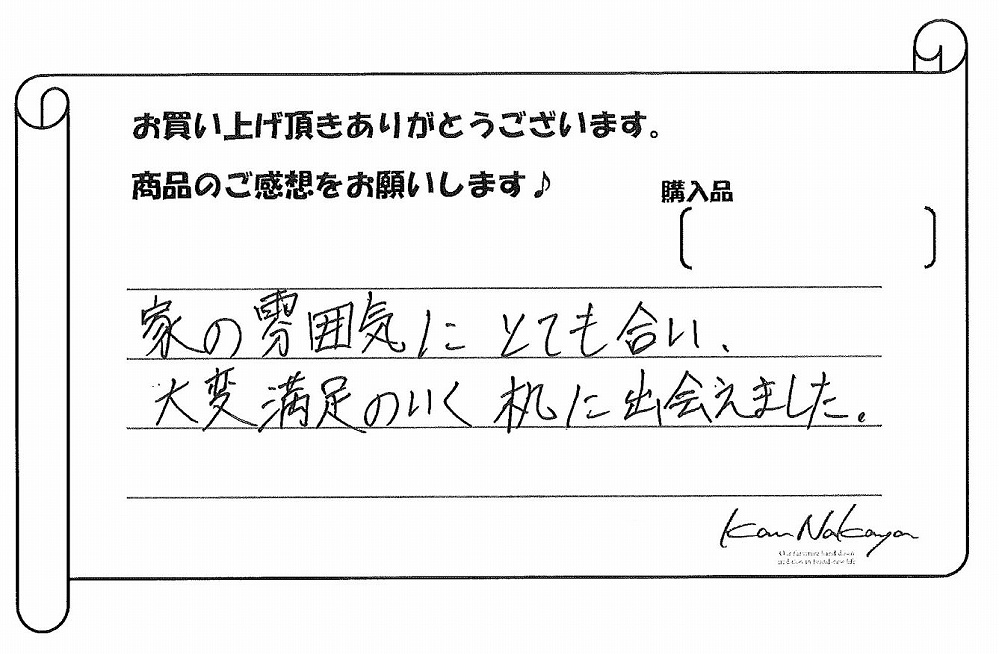 お買い上げ頂きありがとうございます。
商品のご感想をお願いします♪
購入品
家の雰囲気に とても合い、
大変満足のいく 机に出会えました。
Kan Nakaya